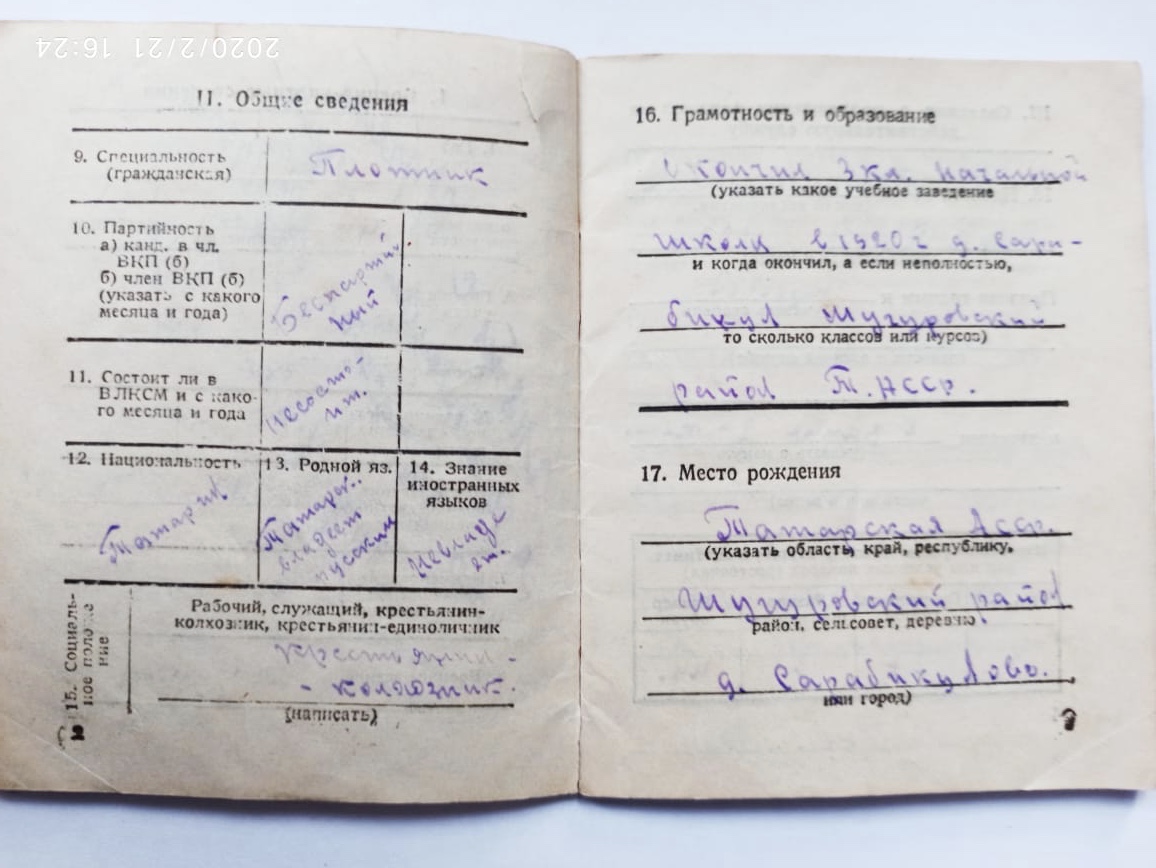 2020/2/21 16:24
II. Общие сведения
9. Специальность
(гражданская)
Плотник
10. Партийность
а) канд. в чл.
ВКП (б)
б) член ВКП (б)
(указать с какого
месяца и года)
Беспартий-
ный
11. Состоит ли в
ВЛКСМ и с како-
го месяца и года
Несосто-
ит.
12. Национальность
Татарин
13. Родной яз.
Татарск..
владеет
русским
14. Знание
иностранных
языков
Невладе
ет.
15. Социаль-
ное положе-
ние
Рабочий, служащий, крестьянин-
колхозник, крестьянин-единоличник
крестьянин-
- колхозник.
(написать)
2
16. Грамотность и образование
Окончил 3 кл. начальной
(указать какое учебное заведение
школы в 1920 г д. Сара-
и когда окончил, а если неполностью,
бикул Шугуровский
то сколько классов или курсов)
район Т. АССР.
17. Место рождения
Татарская Асср.
(указать область, край, республику,
Шугуровский район
район, сельсовет, деревню,
д. Сарабикулово.
или город)